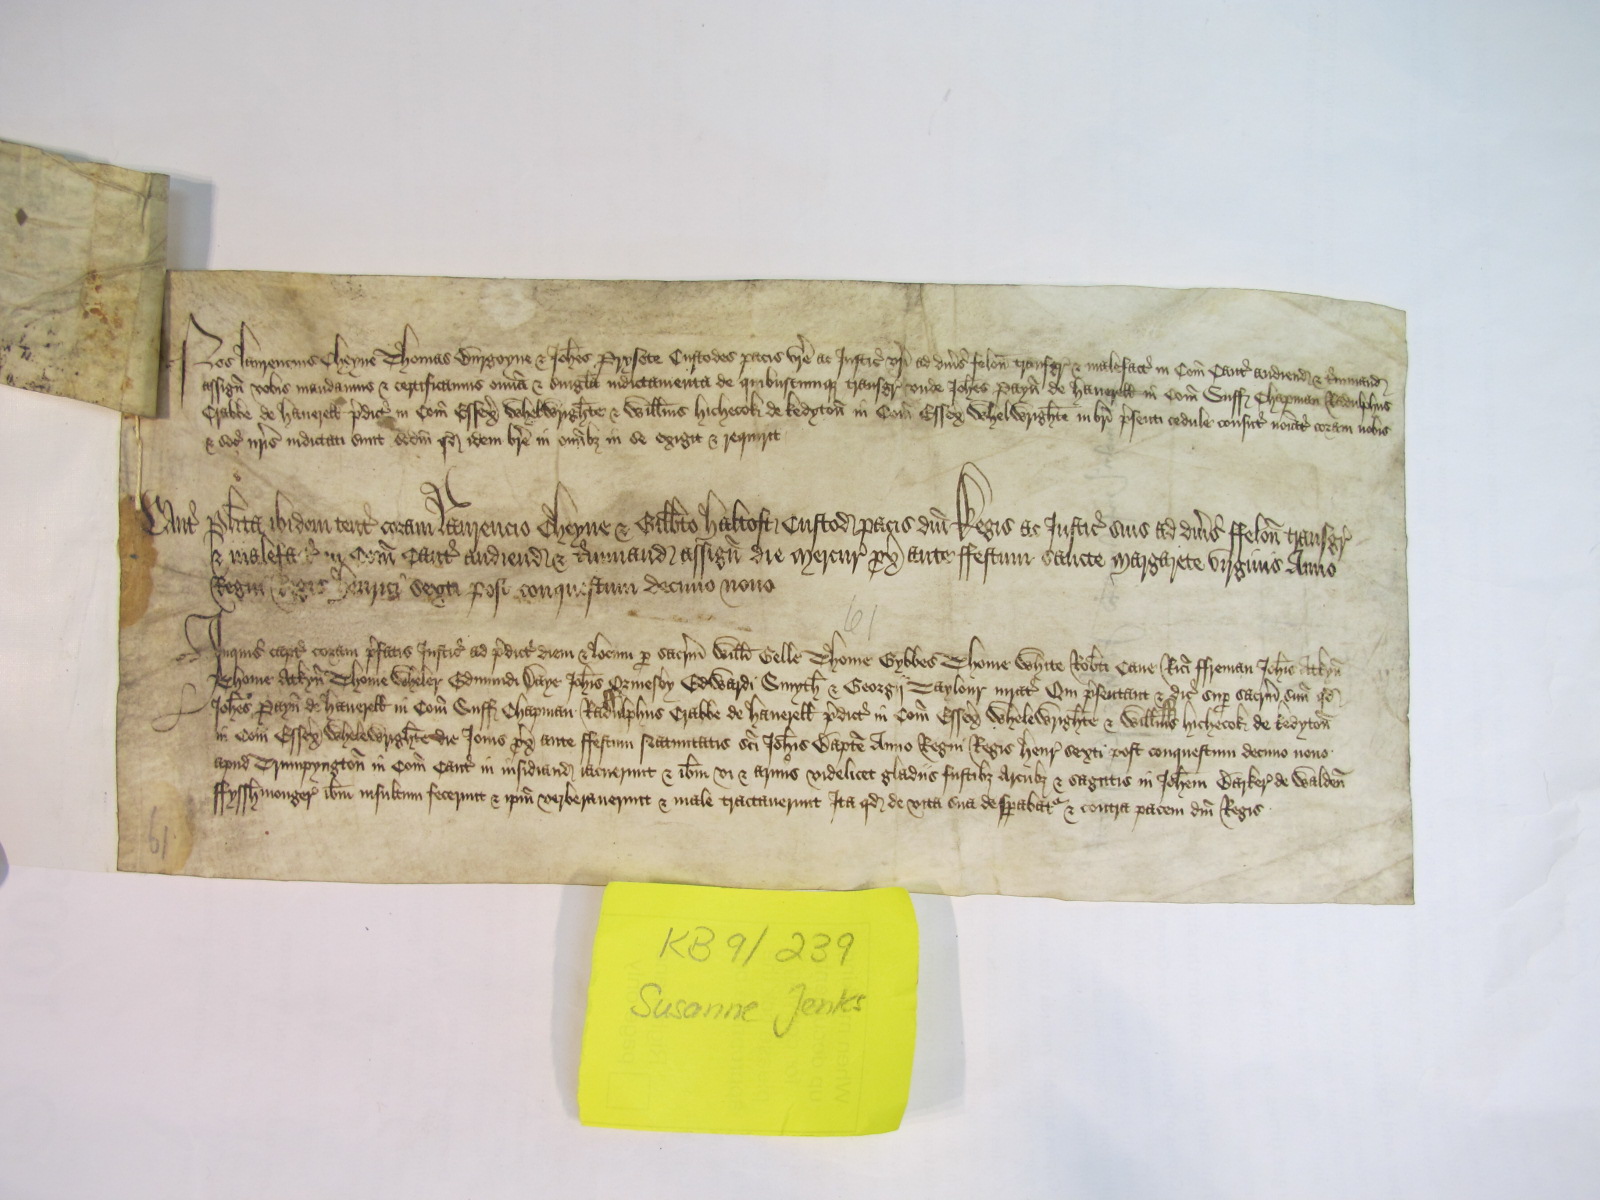 Nos laurencius Cheyne Thomas Burgoyne & Joh̄es Prysote Custodes pacis vr̄e ac Justic̄ vr̄i ad div̄s felon̄ transgr̄ & malefact̄ in Com̄ Cant̄ audiend & t̄minand
assign̄ vobis mandamus & certificamus om̄ia & singl̄a indictamenta de quibuscumq transgr̄ unde Joh̄es Payn̄ de hauerell in Com̄ Suff Chapman Radulphus
Crabbe de hauerell p̄dict̄ in Com̄ Essex Whelwrighte & Will̄ms hichecok de kedyton̄ in Com̄ Essex Whelwrighte in br̄i p̄senti cedule consut̄ no̅iat̄ coram nobis
& soc̄ nr̄is indictati sunt scdm̄ qd idem br̄e in om̄ibz in se exigit & requirit
Cant̄ Pl̄ita ibidem tent̄ coram laurencio Cheyne & Gilb̄to haltoft Custod pacis dn̄i Regis ac Justic̄ suis ad div̄s ffelon̄ transgr̄
& malefact̄ in Com̄ Cant̄ audiend & t̄minand assign̄ die Mercur̄ px̄ ante ffestum sancte Margarete virginis Anno
Regni Regis henrici sexti post conquestum decimo nono
61
Inquis̄ capt̄ coram p̄fatis Justic̄ ad p̄dict̄ diem & locum p sacr̄m Will̄i Gelle Thome Gybbes Thome White Rob̄ti Cane Ric̄i ffreman Joh̄is Atkyn̄
Thome Atkyn̄ Thome Wheler Edmundi Daye Joh̄is Ormesby Edwardi Smyth & Georgii Taylour jurat̄ Qui p̄sentant & dic̄ sup sacr̄m suu̅ qd
Joh̄es Payn̄ de hauerell in Com̄ Suff Chapman Radulphus Crabbe de hauerell p̄dict̄ in Com̄ Essex Whelewrighte & Will̄ms hichecok de kedyton̄
in Com̄ Essex Whelewrighte die Jovis px̄ ante ffestum Natiuitatis sc̄i Joh̄is Bapte̅ Anno Regni Regis henr̄ sexti post conquestum decimo nono
apud Trumpyngton̄ in Com̄ Cant̄ in insidiand iacuerunt & ib̄m vi & armis videlicet gladiis fustibz Arcubz & sagittis in Joh̄em Barker de Walden̄
ffysshmonger ib̄m insultum fecerunt & ip̄m verberauerunt & male tractauerunt Ita qd de vita sua despabat̄ & contra pacem dn̄i Regis
61
KB 9/ 239
Susanne Jenks